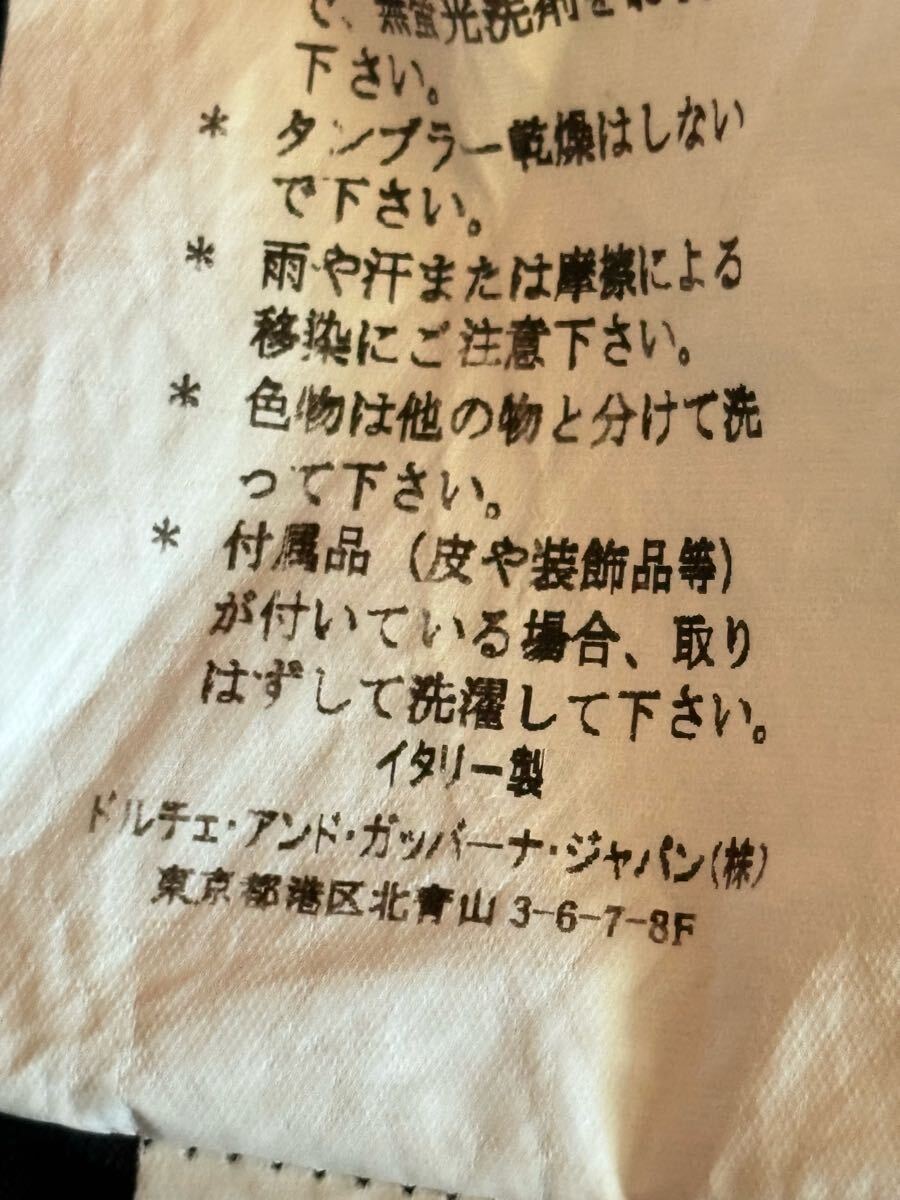 で、無蛍光洗剤をお
下さい。
* タンブラー乾燥はしない
で下さい。
* 雨や汗または摩擦による
移染にご注意下さい。
* 色物は他の物と分けて洗
って下さい。
* 付属品（皮や装飾品等）
が付いている場合、取り
はずして洗濯して下さい。
イタリー製
ドルチェ・アンド・ガッバーナ・ジャパン(株)
東京都港区北青山3-6-7-8F